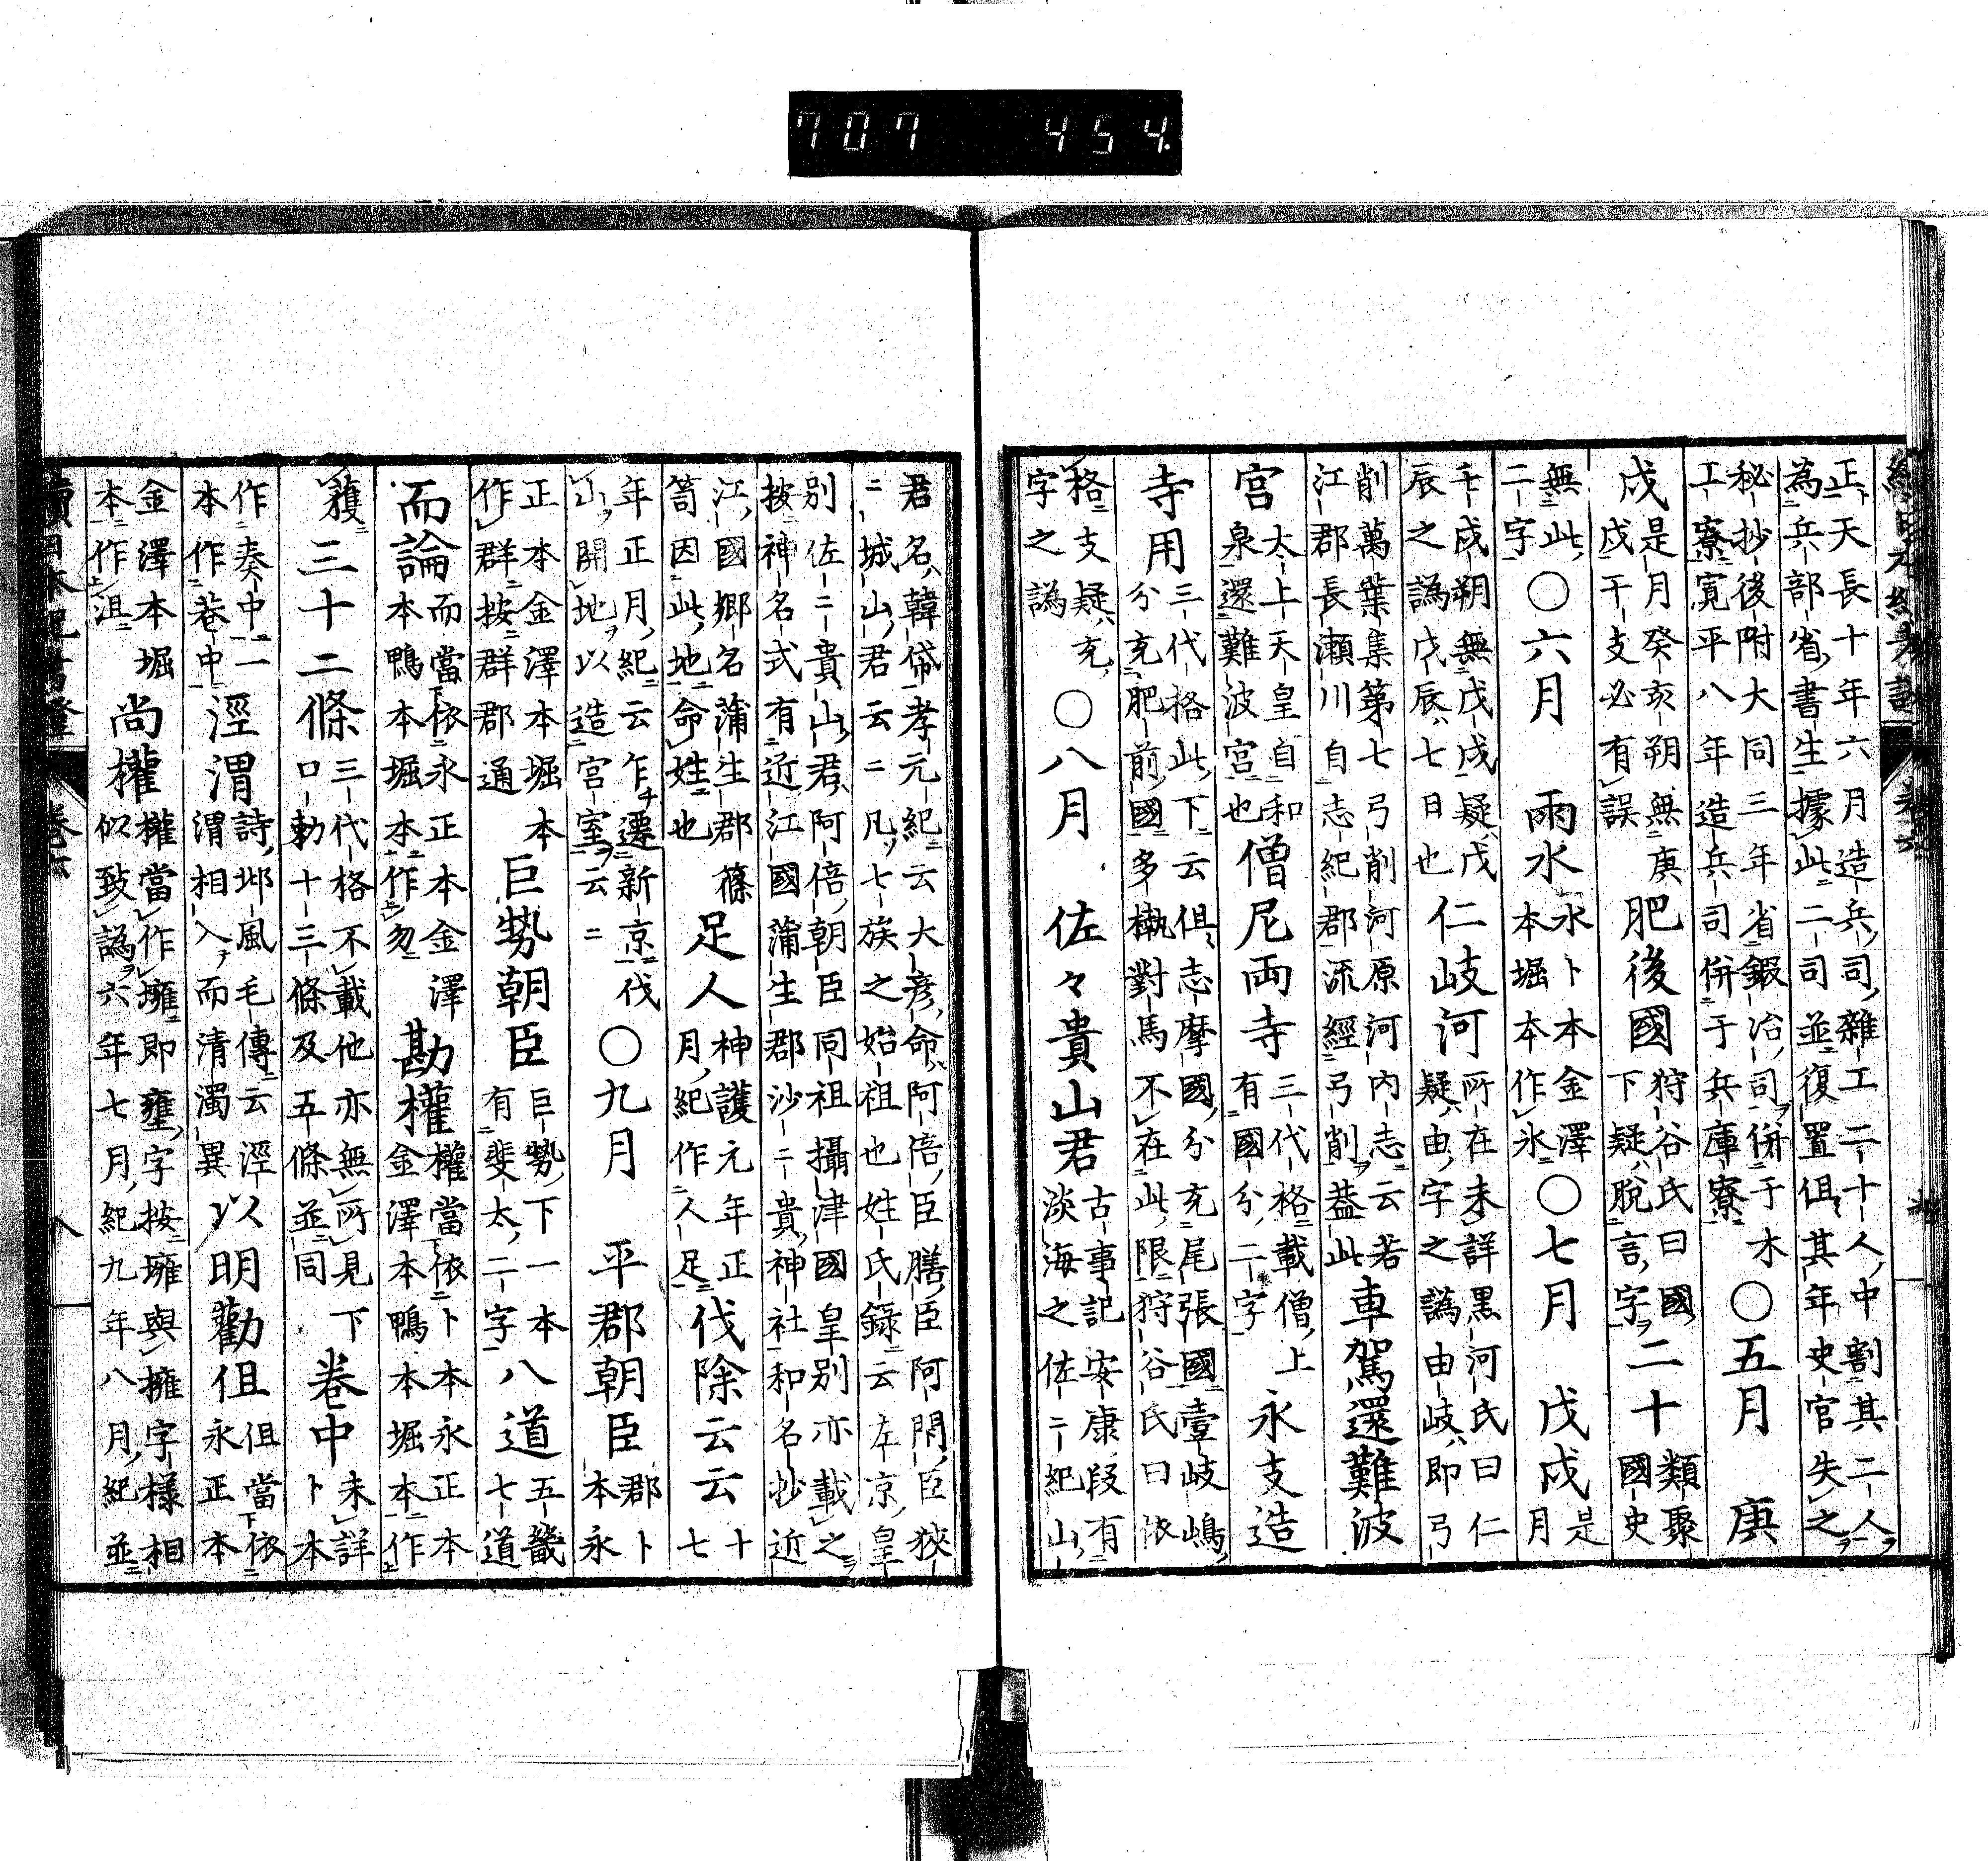 707 454.
正天長十年六月造兵司雜工二十人中割其二人
為兵部省書生據此二司並復置俱其年史官失之
秘抄後附大同三年省鍜冶司併于木
工寮寛平八年造兵司併于兵庫寮
〇五月 庚
戌
是月癸亥朔無庚
戌干支必有誤
肥後國
狩谷氏曰國
下疑脱言字
二十
類聚
國史
無此
二字
〇六月 雨水
水卜本金澤
本堀本作氷
〇七月 戊戌
是
月
壬戌朔無戊戌疑戊
辰之譌戊辰七日也
仁岐河
所在未詳黒河氏曰仁
疑由字之譌由岐即弓
削萬葉集第七弓削河原河内志云若
江郡長瀬川自志紀郡流經弓削葢此
車駕還難波
宮
太上天皇自和
泉還難波宮也
僧尼両寺
三代格載僧上
有國分二字
永支造
寺用
三代格此下云俱志摩國分充尾張國壹岐嶋
分充肥前國多褹對馬不在此限狩谷氏曰依
格支疑充
字之譌
〇八月 佐々貴山君
古事記安康段有
淡海之佐二紀山
君名韓帒孝元紀云大彦命阿倍臣膳臣阿閇臣狹
二城山君云二凡七族之始祖也姓氏録云左京皇
別佐二貴山君阿倍朝臣同祖攝津國皇別亦載之
按神名式有近江國蒲生郡沙二貴神社和名抄近
江國郷名蒲生郡篠
笥因此地命姓也
足人
神護元年正
月紀作人足
伐除云云
十
七
年正月紀云乍遷新京伐
山開地以造宮室云二
〇九月 平郡朝臣
郡卜
本永
正本金澤本堀本
作群按群郡通
巨勢朝臣
巨勢下一本
有斐太二字
八道
五畿
七道
而論
而當依永正本金澤
本鴨本堀本作勿
勘權
權當依卜本永正本
金澤本鴨本堀本作
獲
三十二條
三代格不載他亦無所見
口勅十三條及五條並同
巻中
未詳
卜本
作奏中一
本作巻中
涇渭
詩邶風毛傳云涇
渭相入而清濁異
以明勸俎
俎當依
永正本
金澤本堀
本作沮
尚權
權當作擁即壅字按擁與擁字様相
似致譌六年七月紀九年八月紀並
八